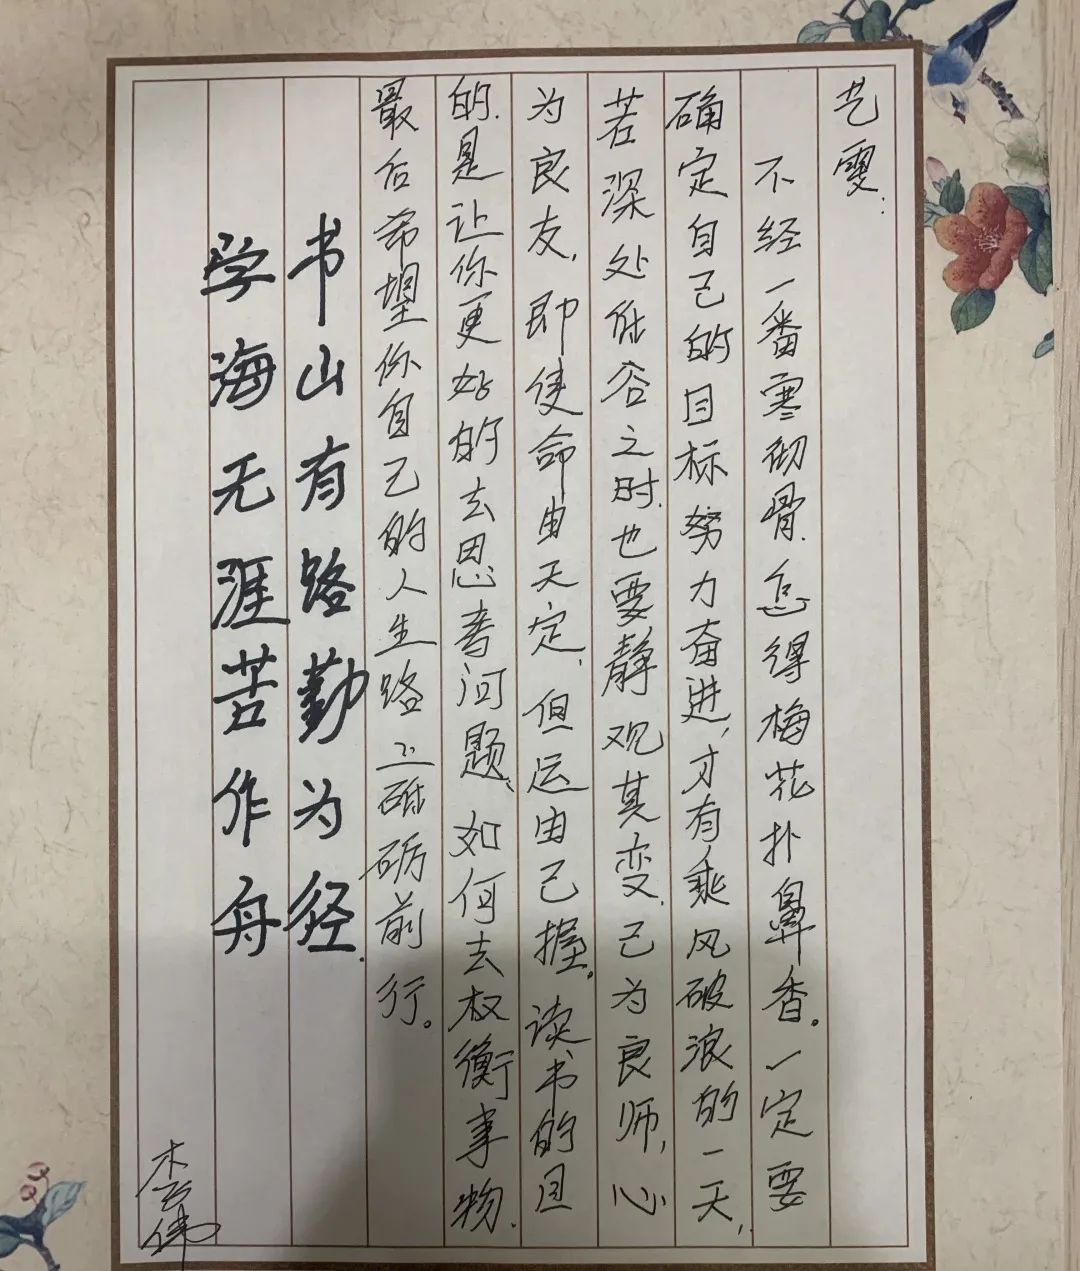 艺雯:
不经一番寒彻骨.怎得梅花扑鼻香。一定要
确定自己的目标努力奋进,才有乘风破浪的一天,
若深处低谷之时.也要静观其变.己为良师,心
为良友,即使命由天定,但运由己握。读书的目
的.是让你更好的去思考问题、如何去权衡事物.
最后希望你自己的人生路上砥砺前行。
书山有路勤为径.
学海无涯苦作舟
李伟